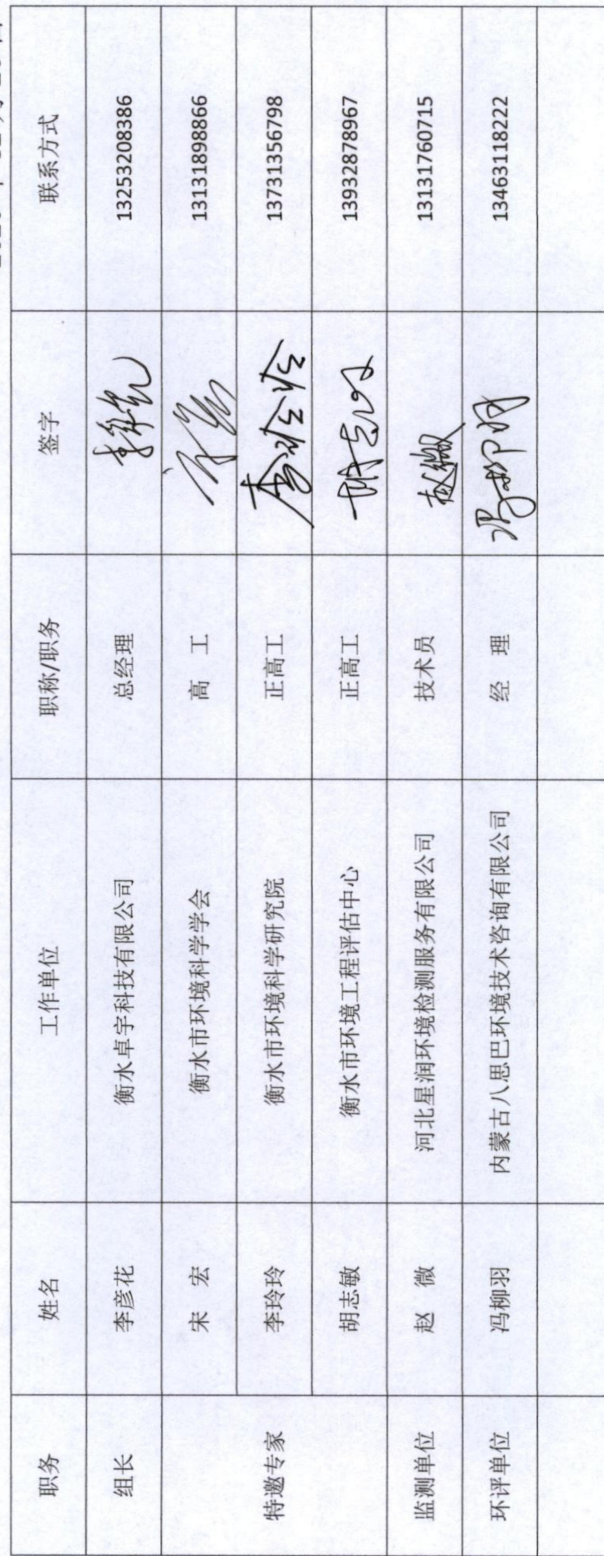 职务 姓名 工作单位 职称/职务 签字 联系方式
组长 李彦花 衡水卓宇科技有限公司 总经理 13253208386
特邀专家 宋 宏 衡水市环境科学学会 高 工 13131898866
李玲玲 衡水市环境科学研究院 正高工 李玲玲 13731356798
胡志敏 衡水市环境工程评估中心 正高工 胡志敏 13932878967
监测单位 赵 微 河北星润环境检测服务有限公司 技术员 赵微 13131760715
环评单位 冯柳羽 内蒙古八思巴环境技术咨询有限公司 经 理 冯柳羽 13463118222